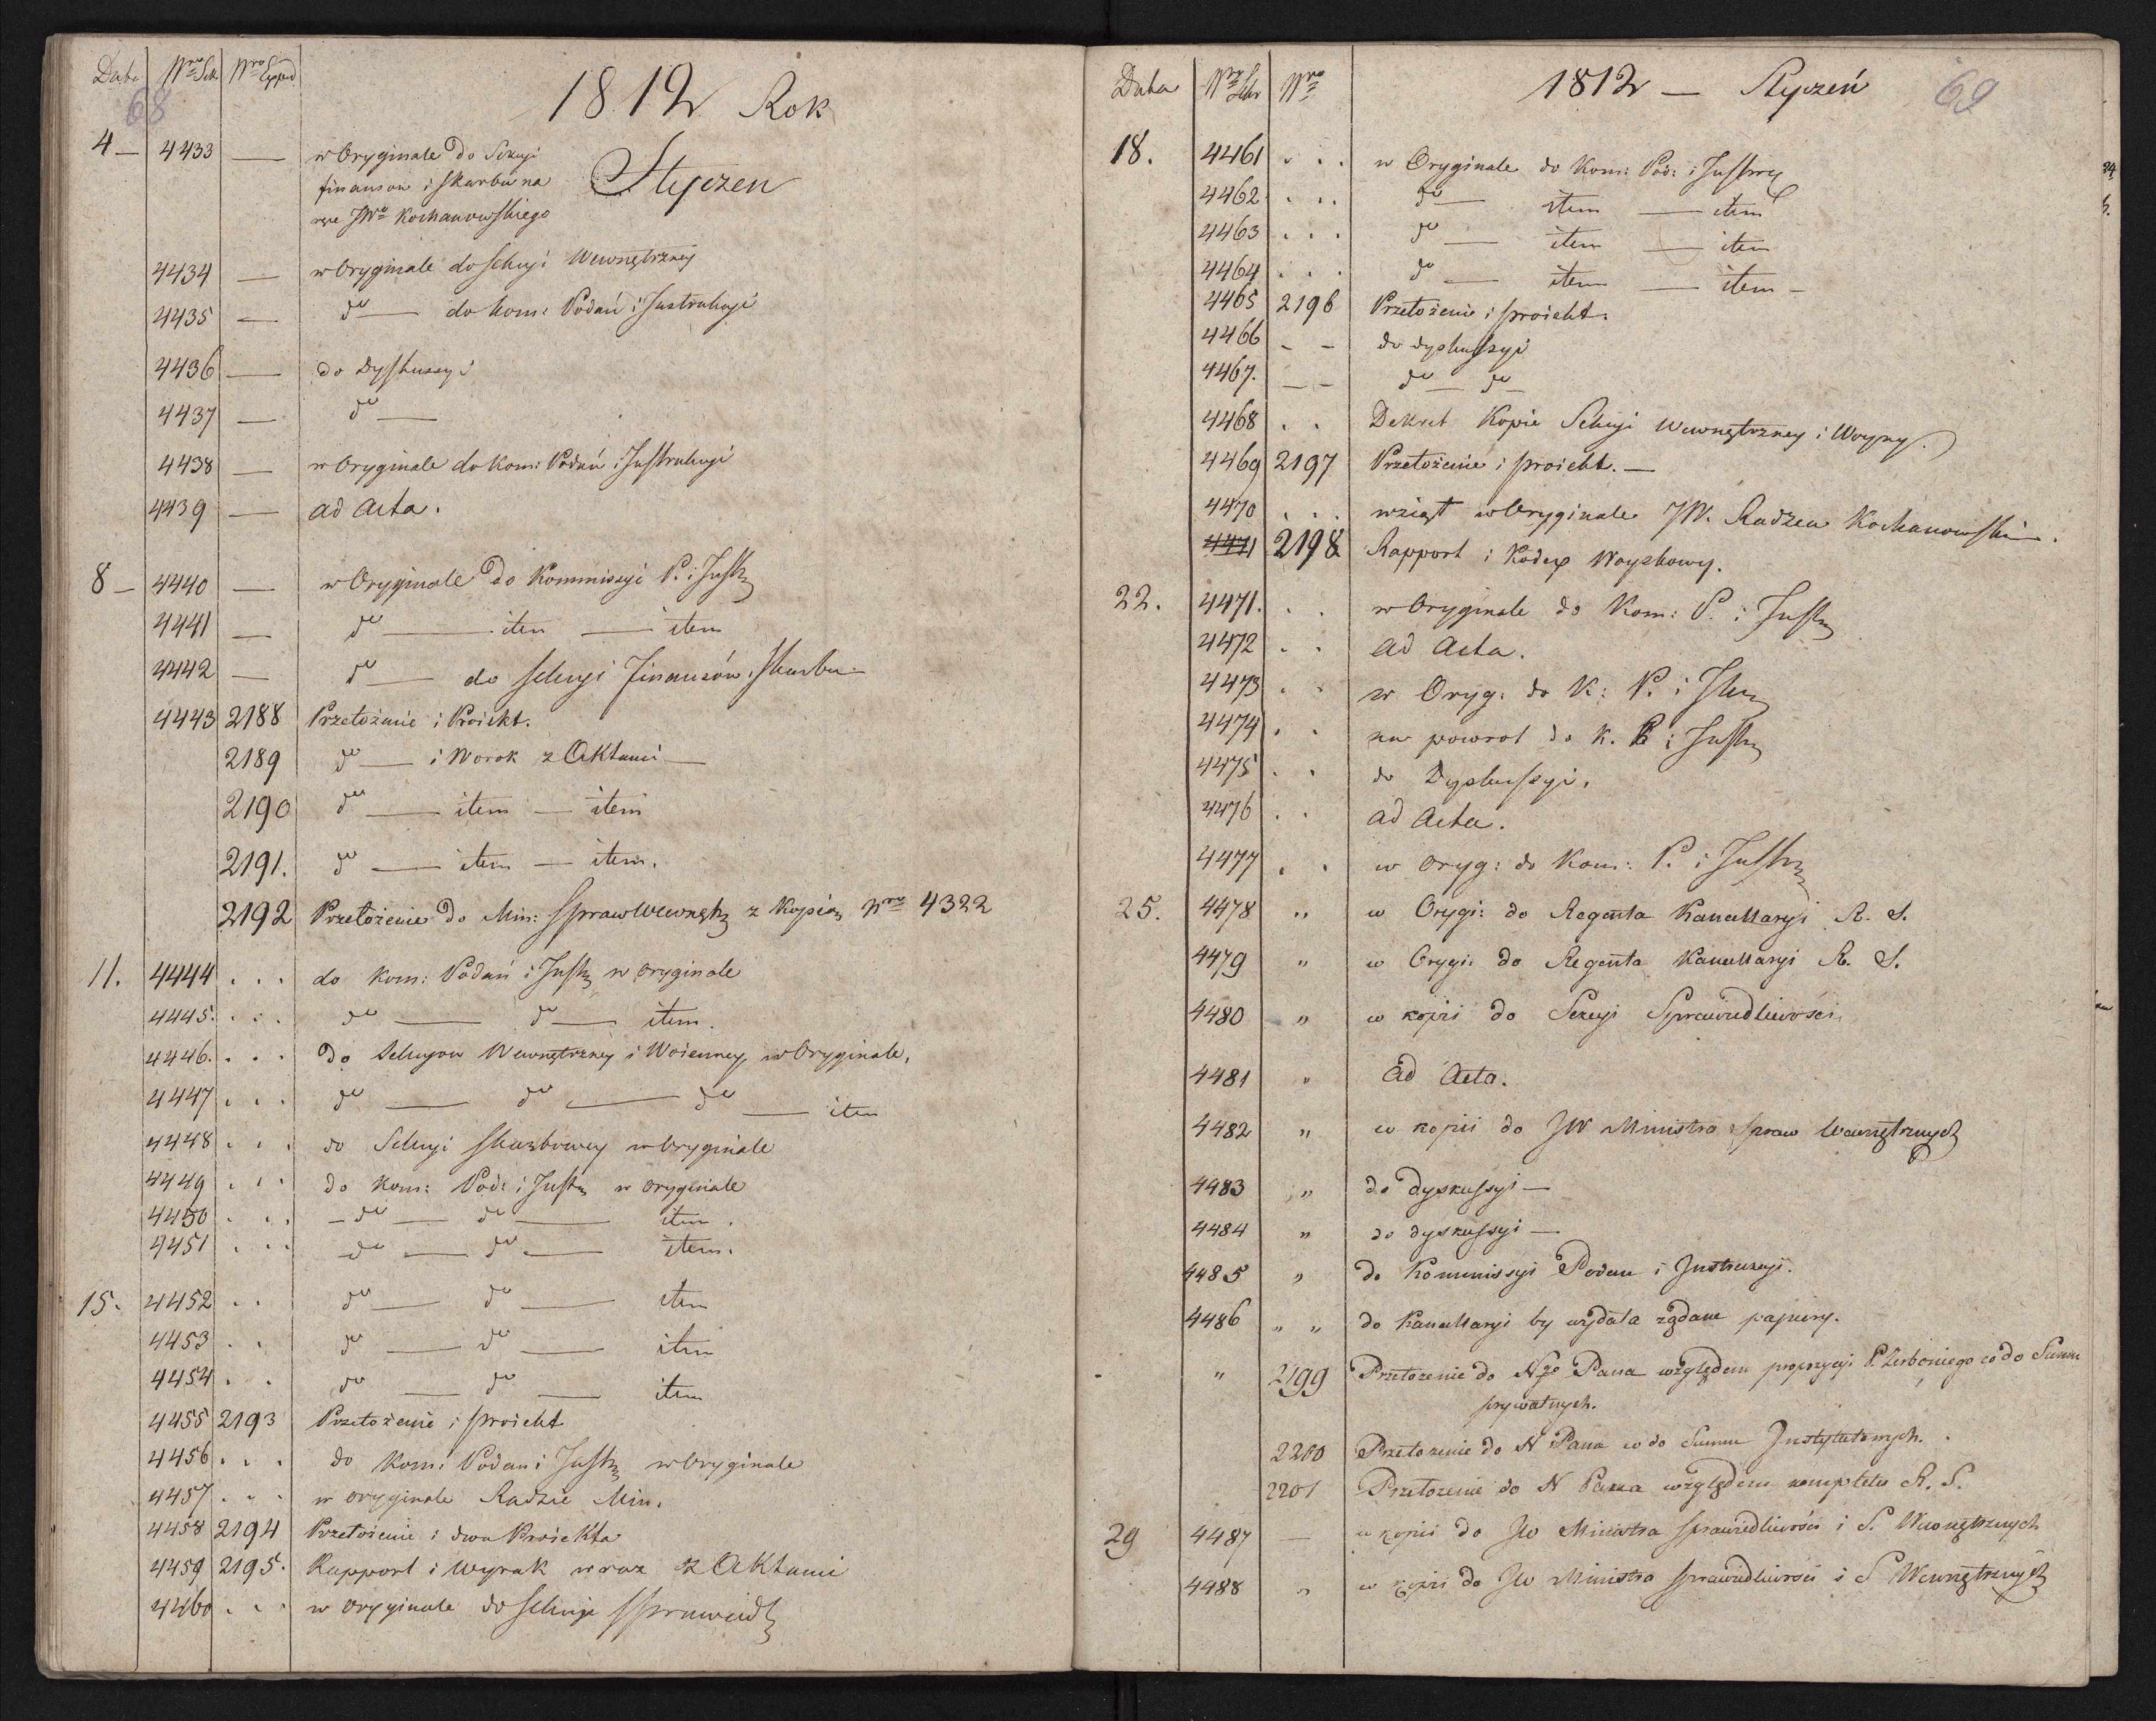 Data Nro Sek Nro Exped.
68
1812 Rok
Styczen
4 — 4433 — w Oryginale do Sekcyi
finansow i Skarbu na
ręce JWo Kochanowskiego
4434 — w Oryginale do Sekcyi Wewnętrzney
4435 — do — do kom: Podań i Instrukcyi
4436 — do Dyskussyi
4437 — do —
4438 — w Oryginale do Kom: Podań i Instrukcyi
4439 — ad Acta.
8 — 4440 — w Oryginale do Kommissyi P. i Instr
4441 — do — item — item
4442 — do — do Sekcyi Finansów i Skarbu —
4443 2188 Przełożenie i Proiekt.
2189 do — i Worok z Aktami —
2190 do — item — item
2191. do — item — item.
2192 Przełożenie do Min: Spraw Wewnętr z Kopią Nro 4322
11. 4444 . . . do Kom: Podań i Instr w Oryginale
4445. . . . do — do — item.
4446. . . . Do Sekcyow Wewnętrzney i Woienney w Oryginale.
4447 . . . do — do — do — item
4448 . . . do Sekcyi Skarbowey w Oryginale
4449 . . . do Kom: Pod: i Instr w Oryginale
4450 . . . — do — do — item.
4451 . . . — do — do — item.
15. 4452 . . do — do — item
4453 . . do — do — item
4454 . . do — do — item
4455 2193 Przełożenie i proiekt
4456 . . . do Kom: Podan i Instr w Oryginale
4457 . . . w Oryginale Radzie Min.
4458 2194 Przełożenie i dwa Proiekta
4459 2195. Rapport i Wyrok wraz z Aktami
4460 . . . w Oryginale do Sekcyi Sprawiedl
Data Nro Sekr Nro
1812 — Styczeń
69
18. 4461 . . . w Oryginale do Kom: Pod: i Instrey
4462 . . . do — item — item
4463 . . . do — item — item
4464 . . . do — item — item —
4465 2196 Przełożenie i proiekt.
4466 — — do dyskussyi
4467. — — do — do —
4468 . . Dekret Kopie Sekcyi Wewnętrzney i Woyny.
4469 2197 Przełożenie i proiekt. —
4470 . . . wziął w Oryginale JW. Radzca Kochanowski.
4471 2198 Rapport i Kodex Woyskowy.
22. 4471. . . w Oryginale do Kom: P. i Instr
4472 . . ad Acta.
4473 . . w Oryg: do K: P. i Istr
4474 . . na powrot do K. P i Instr
4475 . . do Dyskussyi.
4476 . . ad Acta.
4477 . . w Oryg: do Kom: P. i Instr
25. 4478 " w Orygi: do Regenta Kancellaryi R. S.
4479 " w Orygi: do Regenta Kancellaryi R. S.
4480 " w kopii do Sekcyi Sprawiedliwości
4481 " Ad Acta.
4482 " w kopii do JW Ministra spraw Wewnętrznych
4483 " do dyskussyi —
4484 " do dyskussyi —
4485 " do Kommissyi Podan i Instrukcyi.
4486 " " do Kancellaryi by wydała żądane papiery.
" 2199 Przełożenie do Ngo Pana względem propozycyi P. Zerboniego co do Summ
prywatnych.
2200 Przełożenie do N Pana co do Summ Instytutowych.
2201 Przełożenie do N Pana względem kompletu R. S.
29 4487 — w kopii do JW Ministra sprawiedliwości i S. Wewnętrznych
4488 " w kopii do JW Ministra sprawiedliwości i S Wewnętrznych